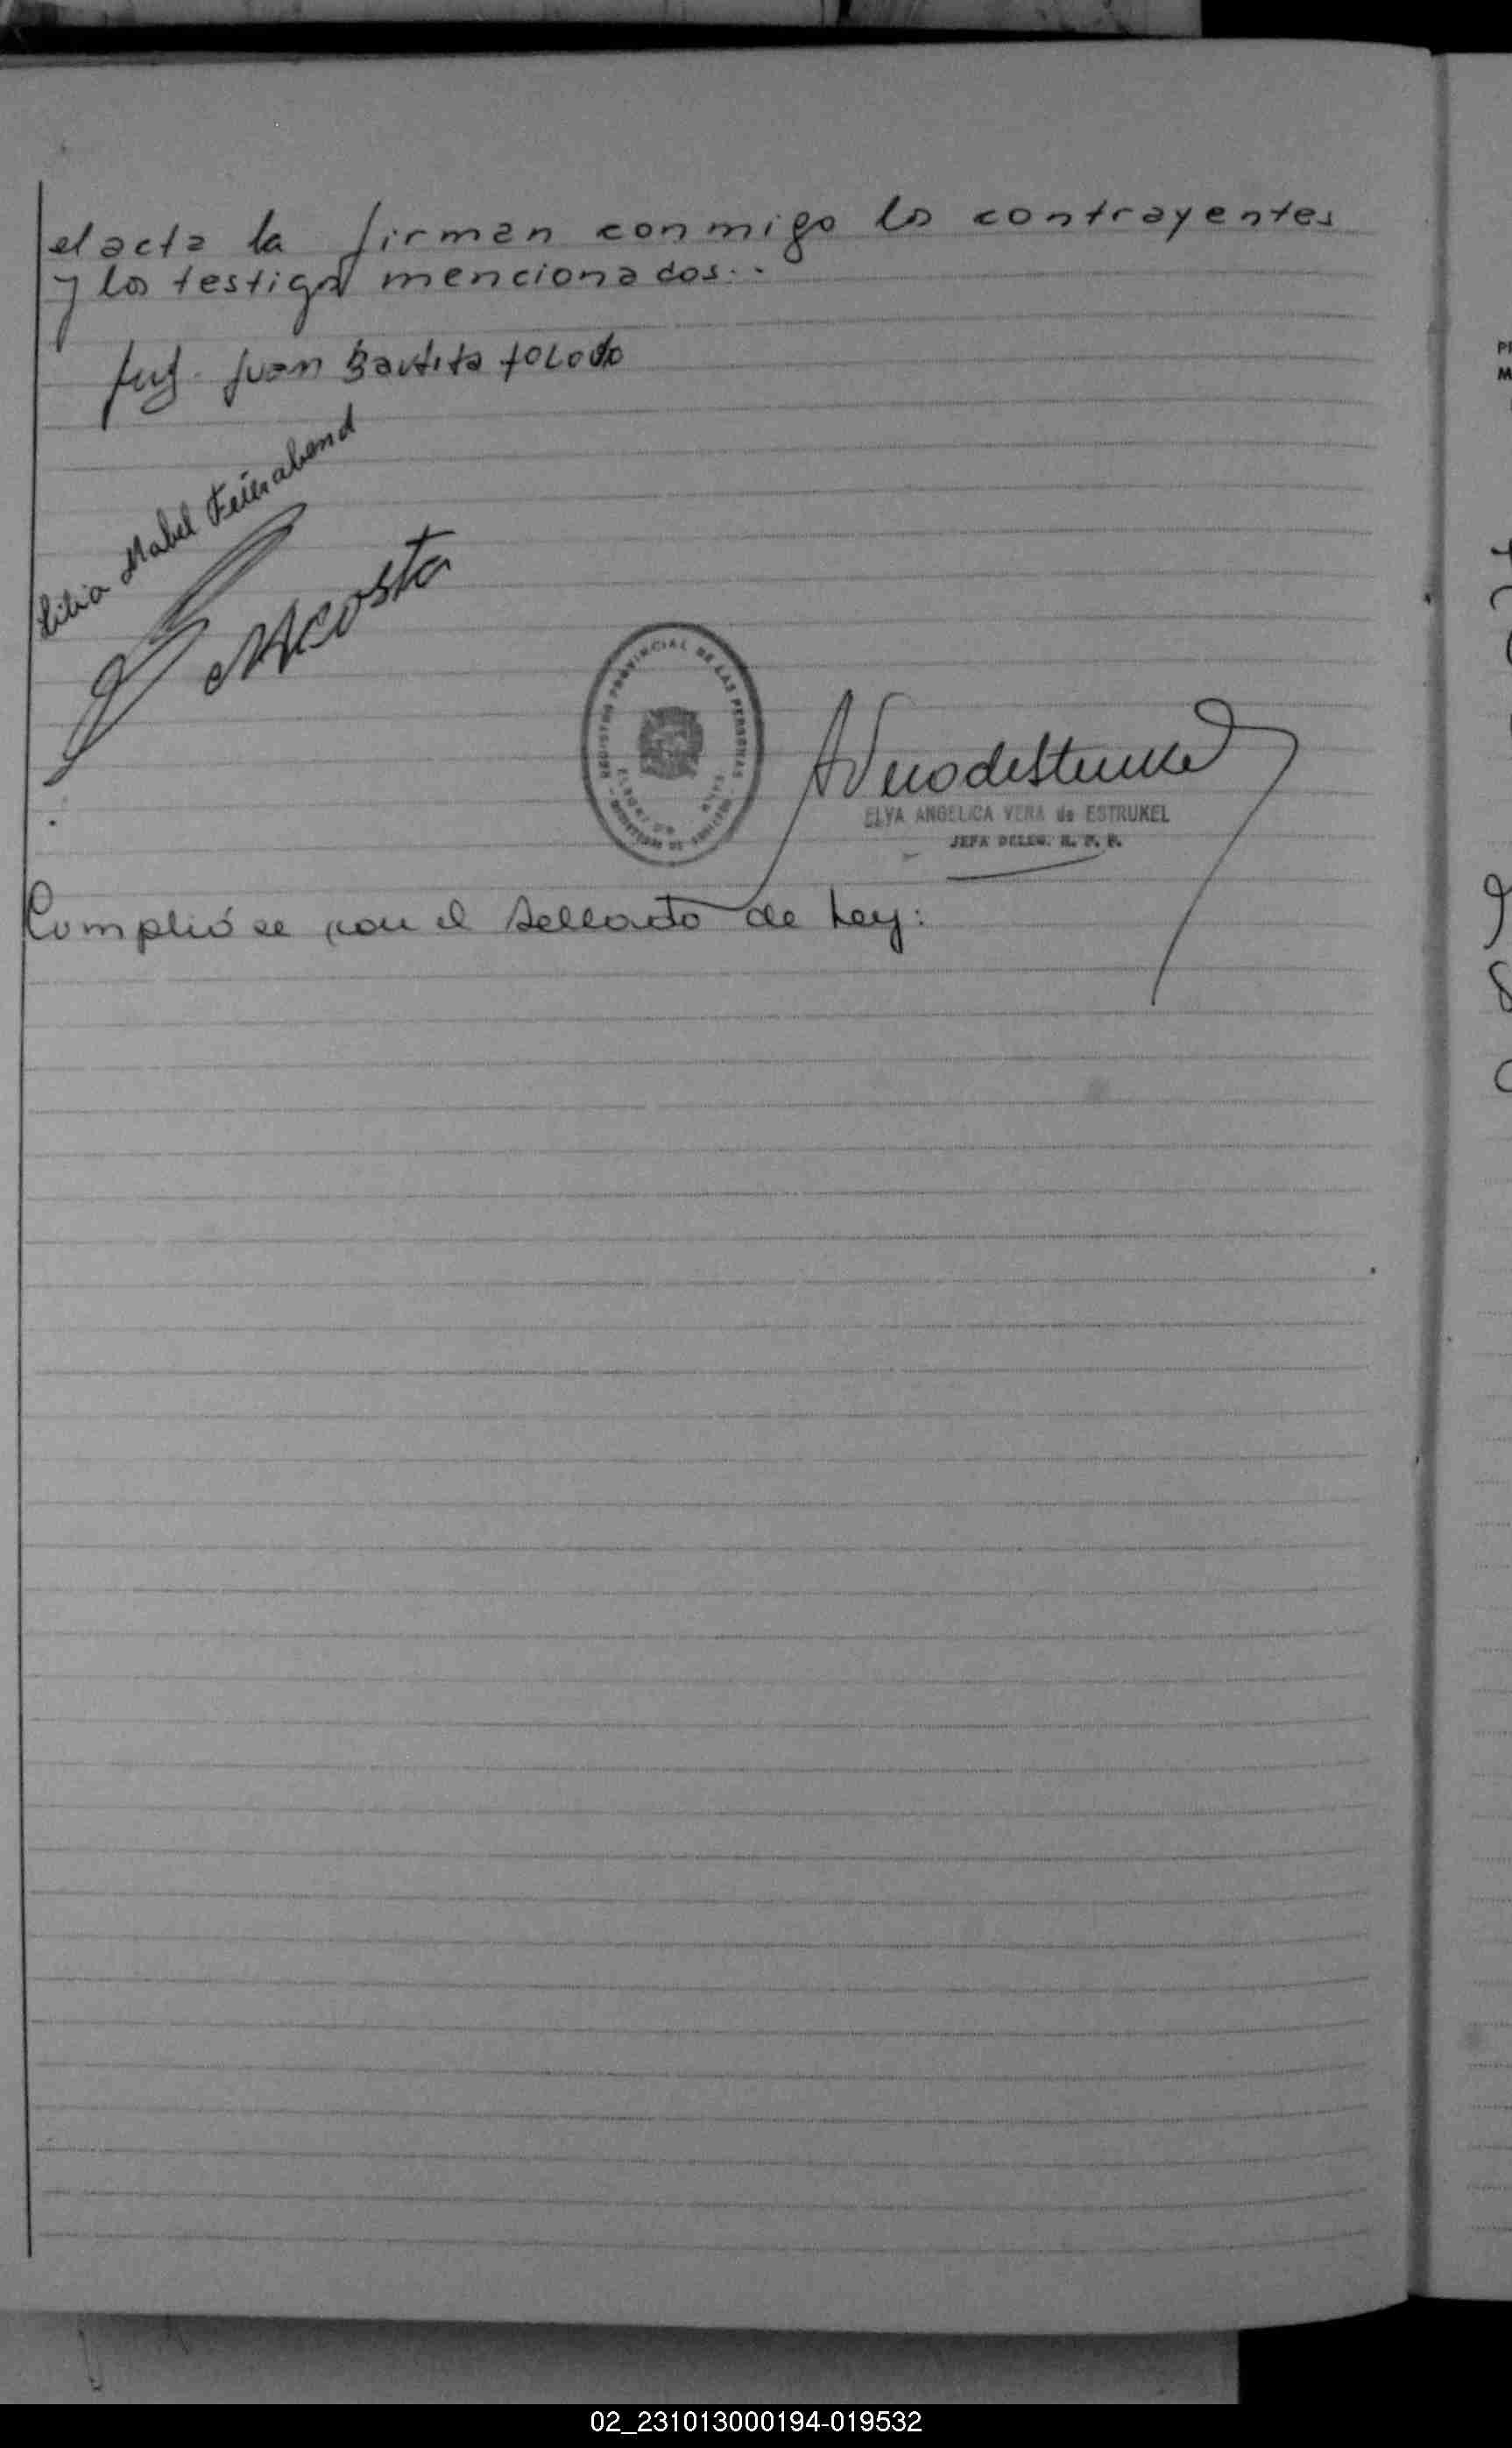 el acta la firman conmigo los contrayentes
y los testigos mencionados.-
Juan Bautista toledo
Lilia Mabel Feierabend
MAcosta
REGISTRO PROVINCIAL DE LAS PERSONAS
AVeradeEstrukel
ELVA ANGELICA VERA de ESTRUKEL
JEFA DELEG. R. P. P.
Cumplióse con el sellado de Ley:
02_231013000194-019532